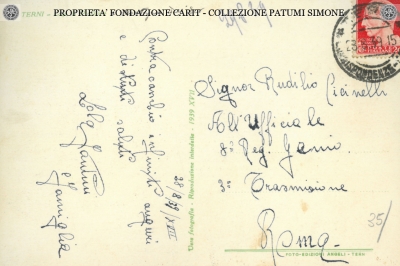 PROPRIETA' FONDAZIONE CARIT - COLLEZIONE PATUMI SIMONE
TERNI -
Contraccambio infiniti auguri
e distinti saluti
Lola Fantini
e famiglia
Vera fotografia - Riproduzione interdetta - 1939 XVII
Signor Rudilio Cicinelli
All'Ufficiale
8º Regg. Genio
3ª Trasmissione
Roma
35/
FOTO-EDIZIONI ANGELI - TERNI